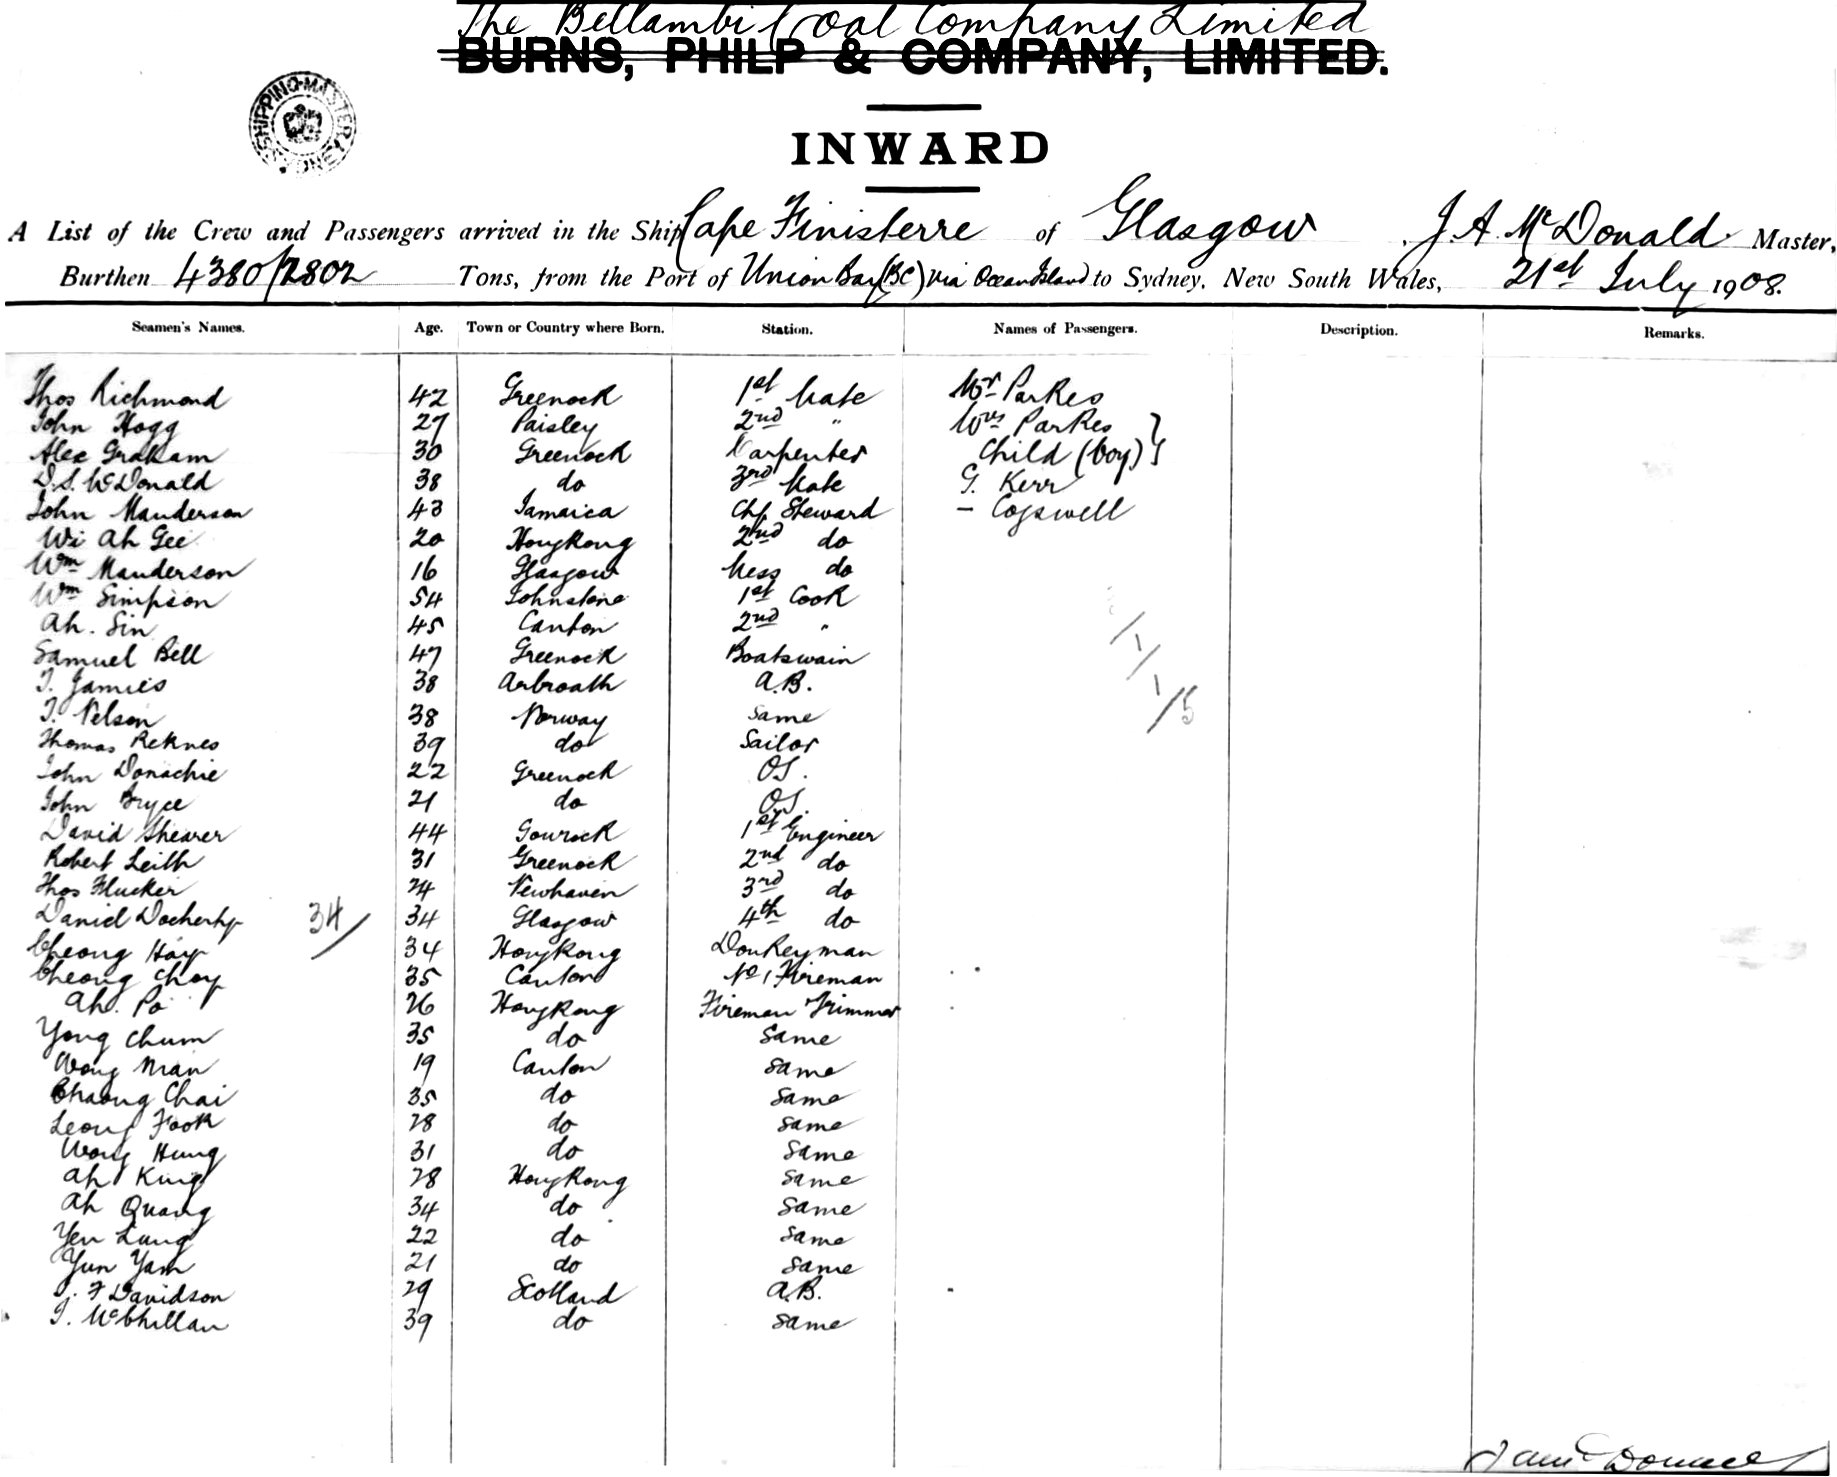 The Bellambi Coal Company Limited
BURNS, PHILP & COMPANY, LIMITED.
SHIPPING MASTER
INWARD
A List of the Crew and Passengers arrived in the Ship Cape Finisterre of Glasgow, J. A. McDonald Master,
Burthen 4380/2802 Tons, from the Port of Union Bay (BC) via Ocean Island to Sydney, New South Wales, 21st July 1908.
Seamen's Names. Age. Town or Country where Born. Station. Names of Passengers. Description. Remarks.
Thos Richmond 42 Greenock 1st Mate Mr Parkes
John Hogg 27 Paisley 2nd " Mrs Parkes
Alex Graham 30 Greenock Carpenter Child (boy)
D.S. McDonald 38 do 3rd Mate G. Kerr
John Manderson 43 Jamaica Chf Steward – Cogswell
Wi Ah Gee 20 Hongkong 2nd do
Wm Manderson 16 Glasgow Mess do
Wm Simpson 54 Johnstone 1st Cook
Ah. Sin 45 Canton 2nd "
Samuel Bell 47 Greenock Boatswain
T. Jamies 38 Arbroath A.B.
T. Nelson 38 Norway Same
Thomas Reknes 39 do Sailor
John Donachie 22 Greenock OS.
John Bryce 21 do OS.
David Shearer 44 Gourock 1st Engineer
Robert Leith 31 Greenock 2nd do
Thos Flucker 24 Newhaven 3rd do
Daniel Docherty 34/ 34 Glasgow 4th do
Cheong Hoy 34 Hongkong Donkeyman
Cheong Choy 35 Canton No 1 Fireman
Ah. Po 26 Hongkong Fireman Trimmer
Yong Chum 35 do Same
Wong Man 19 Canton same
Chaong Chai 35 do same
Leong Fook 28 do same
Wong Hung 31 do same
Ah King 28 Hongkong same
Ah Quang 34 do same
Yen Lung 22 do same
Yun Yam 21 do same
J. F Davidson 29 Scotland A.B.
J. McPhillan 39 do same